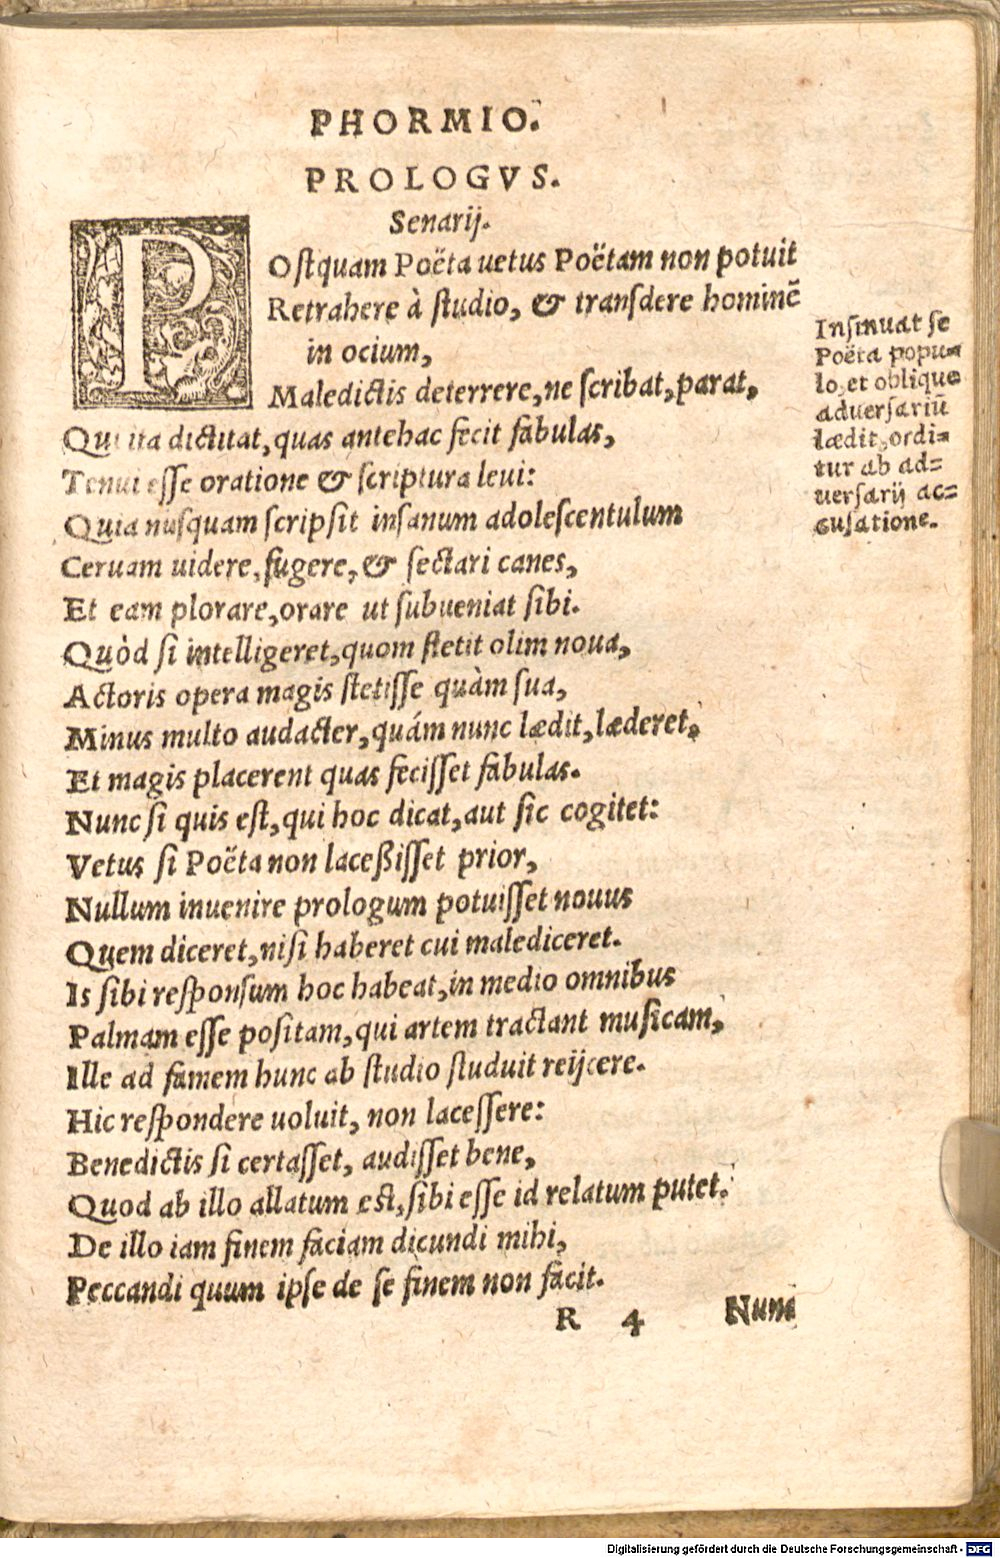 PHORMIO.
PROLOGVS.
Senarij.
POstquam Poëta uetus Poëtam non potuit
Retrahere à studio, & transdere hominē
in ocium,
Maledictis deterrere, ne scribat, parat,
Qui ita dictitat, quas antehac fecit fabulas,
Tenui esse oratione & scriptura leui:
Quia nusquam scripsit insanum adolescentulum
Ceruam uidere, fugere, & sectari canes,
Et eam plorare, orare ut subueniat sibi.
Quòd si intelligeret, quom stetit olim noua,
Actoris opera magis stetisse quàm sua,
Minus multo audacter, quám nunc lædit, læderet.
Et magis placerent quas fecisset fabulas.
Nunc si quis est, qui hoc dicat, aut sic cogitet:
Vetus si Poëta non laceßisset prior,
Nullum inuenire prologum potuisset nouus
Quem diceret, nisi haberet cui malediceret.
Is sibi responsum hoc habeat, in medio omnibus
Palmam esse positam, qui artem tractant musicam,
Ille ad famem hunc ab studio studuit reijcere.
Hic respondere uoluit, non lacessere:
Benedictis si certasset, audisset bene,
Quod ab illo allatum est, sibi esse id relatum putet.
De illo iam finem faciam dicundi mihi,
Peccandi quum ipse de se finem non facit.
R 4 Nunc
Insinuat se
Poëta popu=
lo, et oblique
aduersariū
lædit, ordi=
tur ab ad=
uersarij ac=
cusatione.
Digitalisierung gefördert durch die Deutsche Forschungsgemeinschaft - DFG